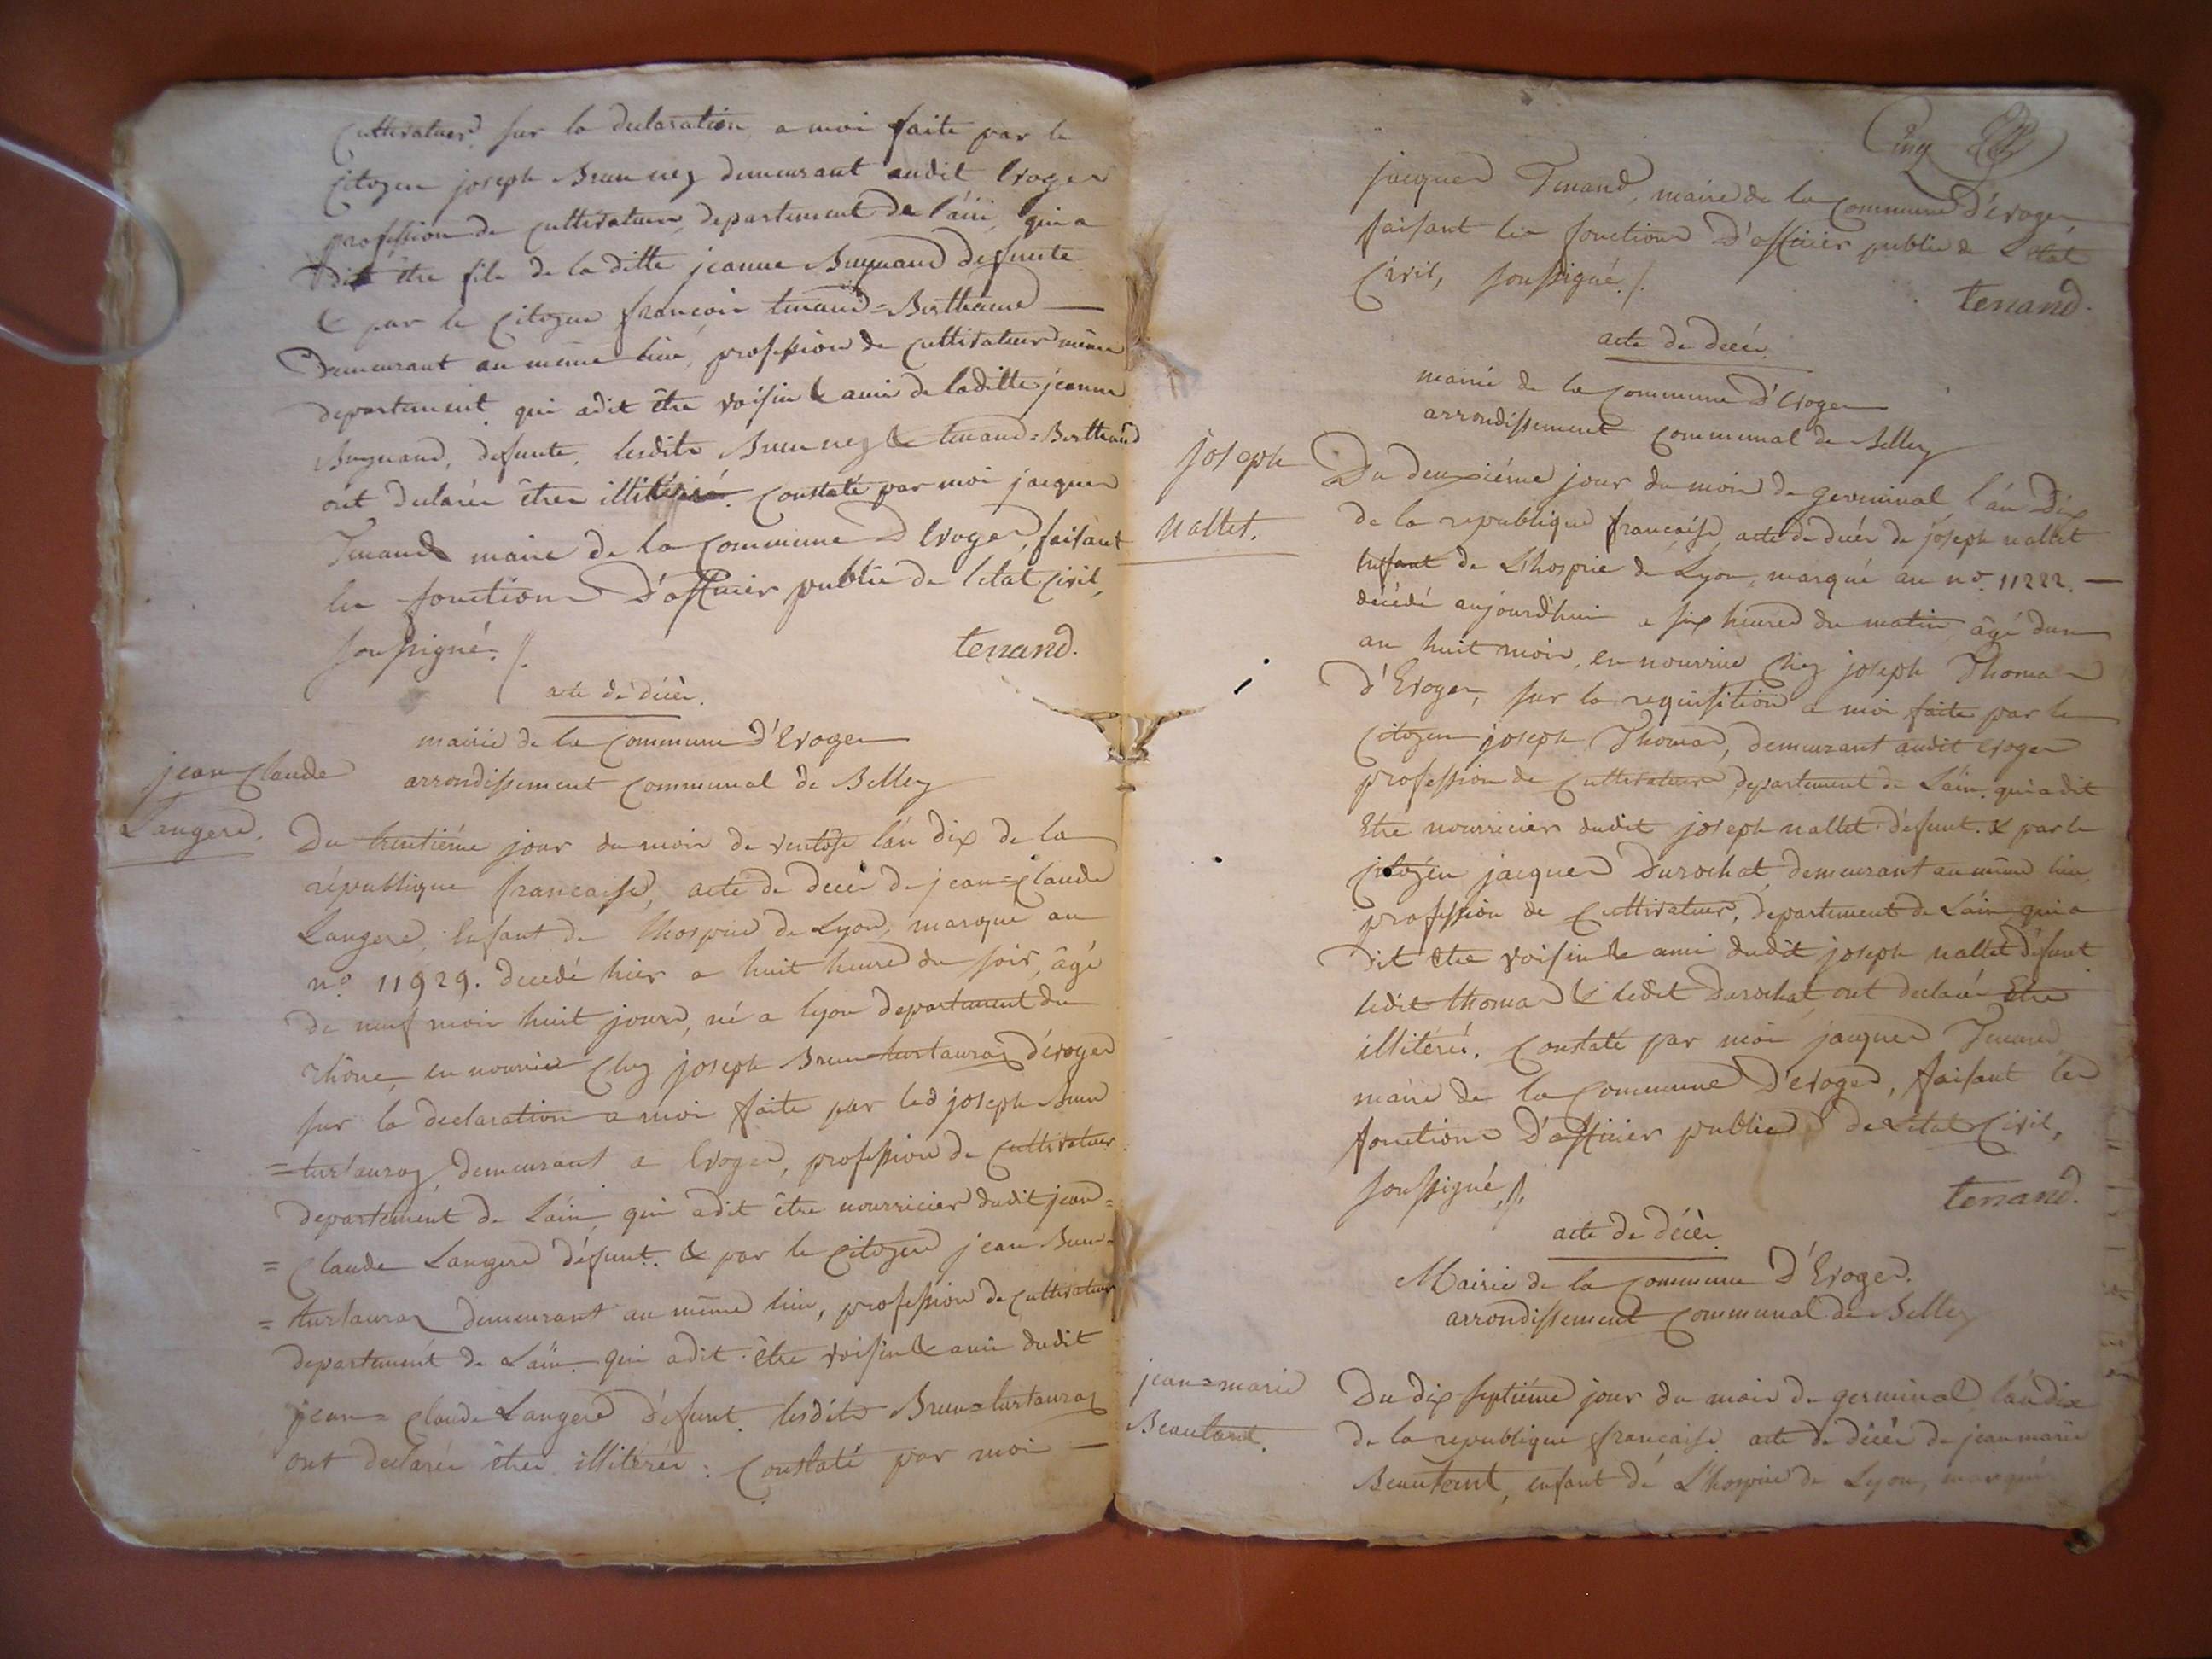 cultivateur, sur la declaration a moi faite par le
citoyen joseph Brun nez demeurant audit Evoges
profession de cultivateur, departement de l'ain, qui a
dit être fils de la ditte jeanne Buynand defunte
& par le citoyen françois tenand=Bertheaud —
Demeurant au même lieu, profession de cultivateur même
departement qui adit être voisin & ami de laditte jeanne
Buynand, defunte. lesdits Brun nez & tenand=Bertheaud
ont declarés êtres illitérés. Constaté par moi jacques
Tenand maire de la Commune D'Evoges, faisant
les fonctions D'officier public de letat civil,
soussigné. /.
tenand.
acte de décès.
mairie de la Commune d'Evoges
arrondissement Communal de Belley
jean Claude
Langere.
Du trentiéme jour du mois de ventose l'an dix de la
république francaise, acte de deces de jean=Claude
Langere, Enfant de lhospice de Lyon, marqué au
n.o 11929. decedé hier a huit heures du soir, âgé
de neuf mois huit jours, né a lyon departement du
rhône, en nourrice Chez joseph Brun=turtauraz d'évoges
sur la declaration a moi faite par led joseph Brun
=turtauraz, demeurant a Evoges, profession de cultivateur
departement de Lain, qui adit être nourricier dudit jean=
=Claude Langere défunt. & par le Citoyen jean Brun=
=turtauraz demeurant au même lieu, profession de cultivateur
departement de Lain qui adit être voisin & ami dudit
jean=Claude Langere défunt. lesdits Brun=turtauraz
ont declarés êtres illitérés : Constaté par moi —
Cinq
jacques Tenand, maire de la Commune d'évoges
faisant les fonctions D'officier public de Létat
Civil, soussigné. /.
tenand.
acte de decès.
mairie de la Commune d'Evoges
arrondissement Communal de Belley
joseph
nallet.
Du deuxiéme jour du mois de germinal l'an Dix
de la republique francaise, acte de décés de joseph nallet
Enfant de L'hospice de Lyon, marqué au n.o 11222. —
décédé aujourd'hui a six heures du matin, âgé dun
an huit mois, en nourrice Chez joseph Thomas
d'Evoges, sur la requisition a moi faite par le
Citoyen joseph Thomas, demeurant audit evoges
profession de Cultivateur, departement de Lain, qui a dit
Etre nourricier dudit joseph nallet défunt. & par le
citoyen jacques Durochat, demeurant au même lieu,
profession de Cultivateur, departement de Lain qui a
dit etre voisin & ami dudit joseph nallet défunt
ledit thomas & ledit Durochat ont declarés Etre
illitérés. Constaté par moi jacques Tenand
maire de la Commune D'evoges, faisant les
fonctions D'officier public de Létat Civil,
soussigné, /.
tenand.
acte de décès
Mairie de la Commune D'Evoges.
arrondissement Communal de Belley
jean=marie
Beautant.
Du dix-septiéme jour du mois de germinal, l'an dix
de la republique francaise, acte de décès de jean marie
Beautant, enfant de L'hospice de Lyon, marqué